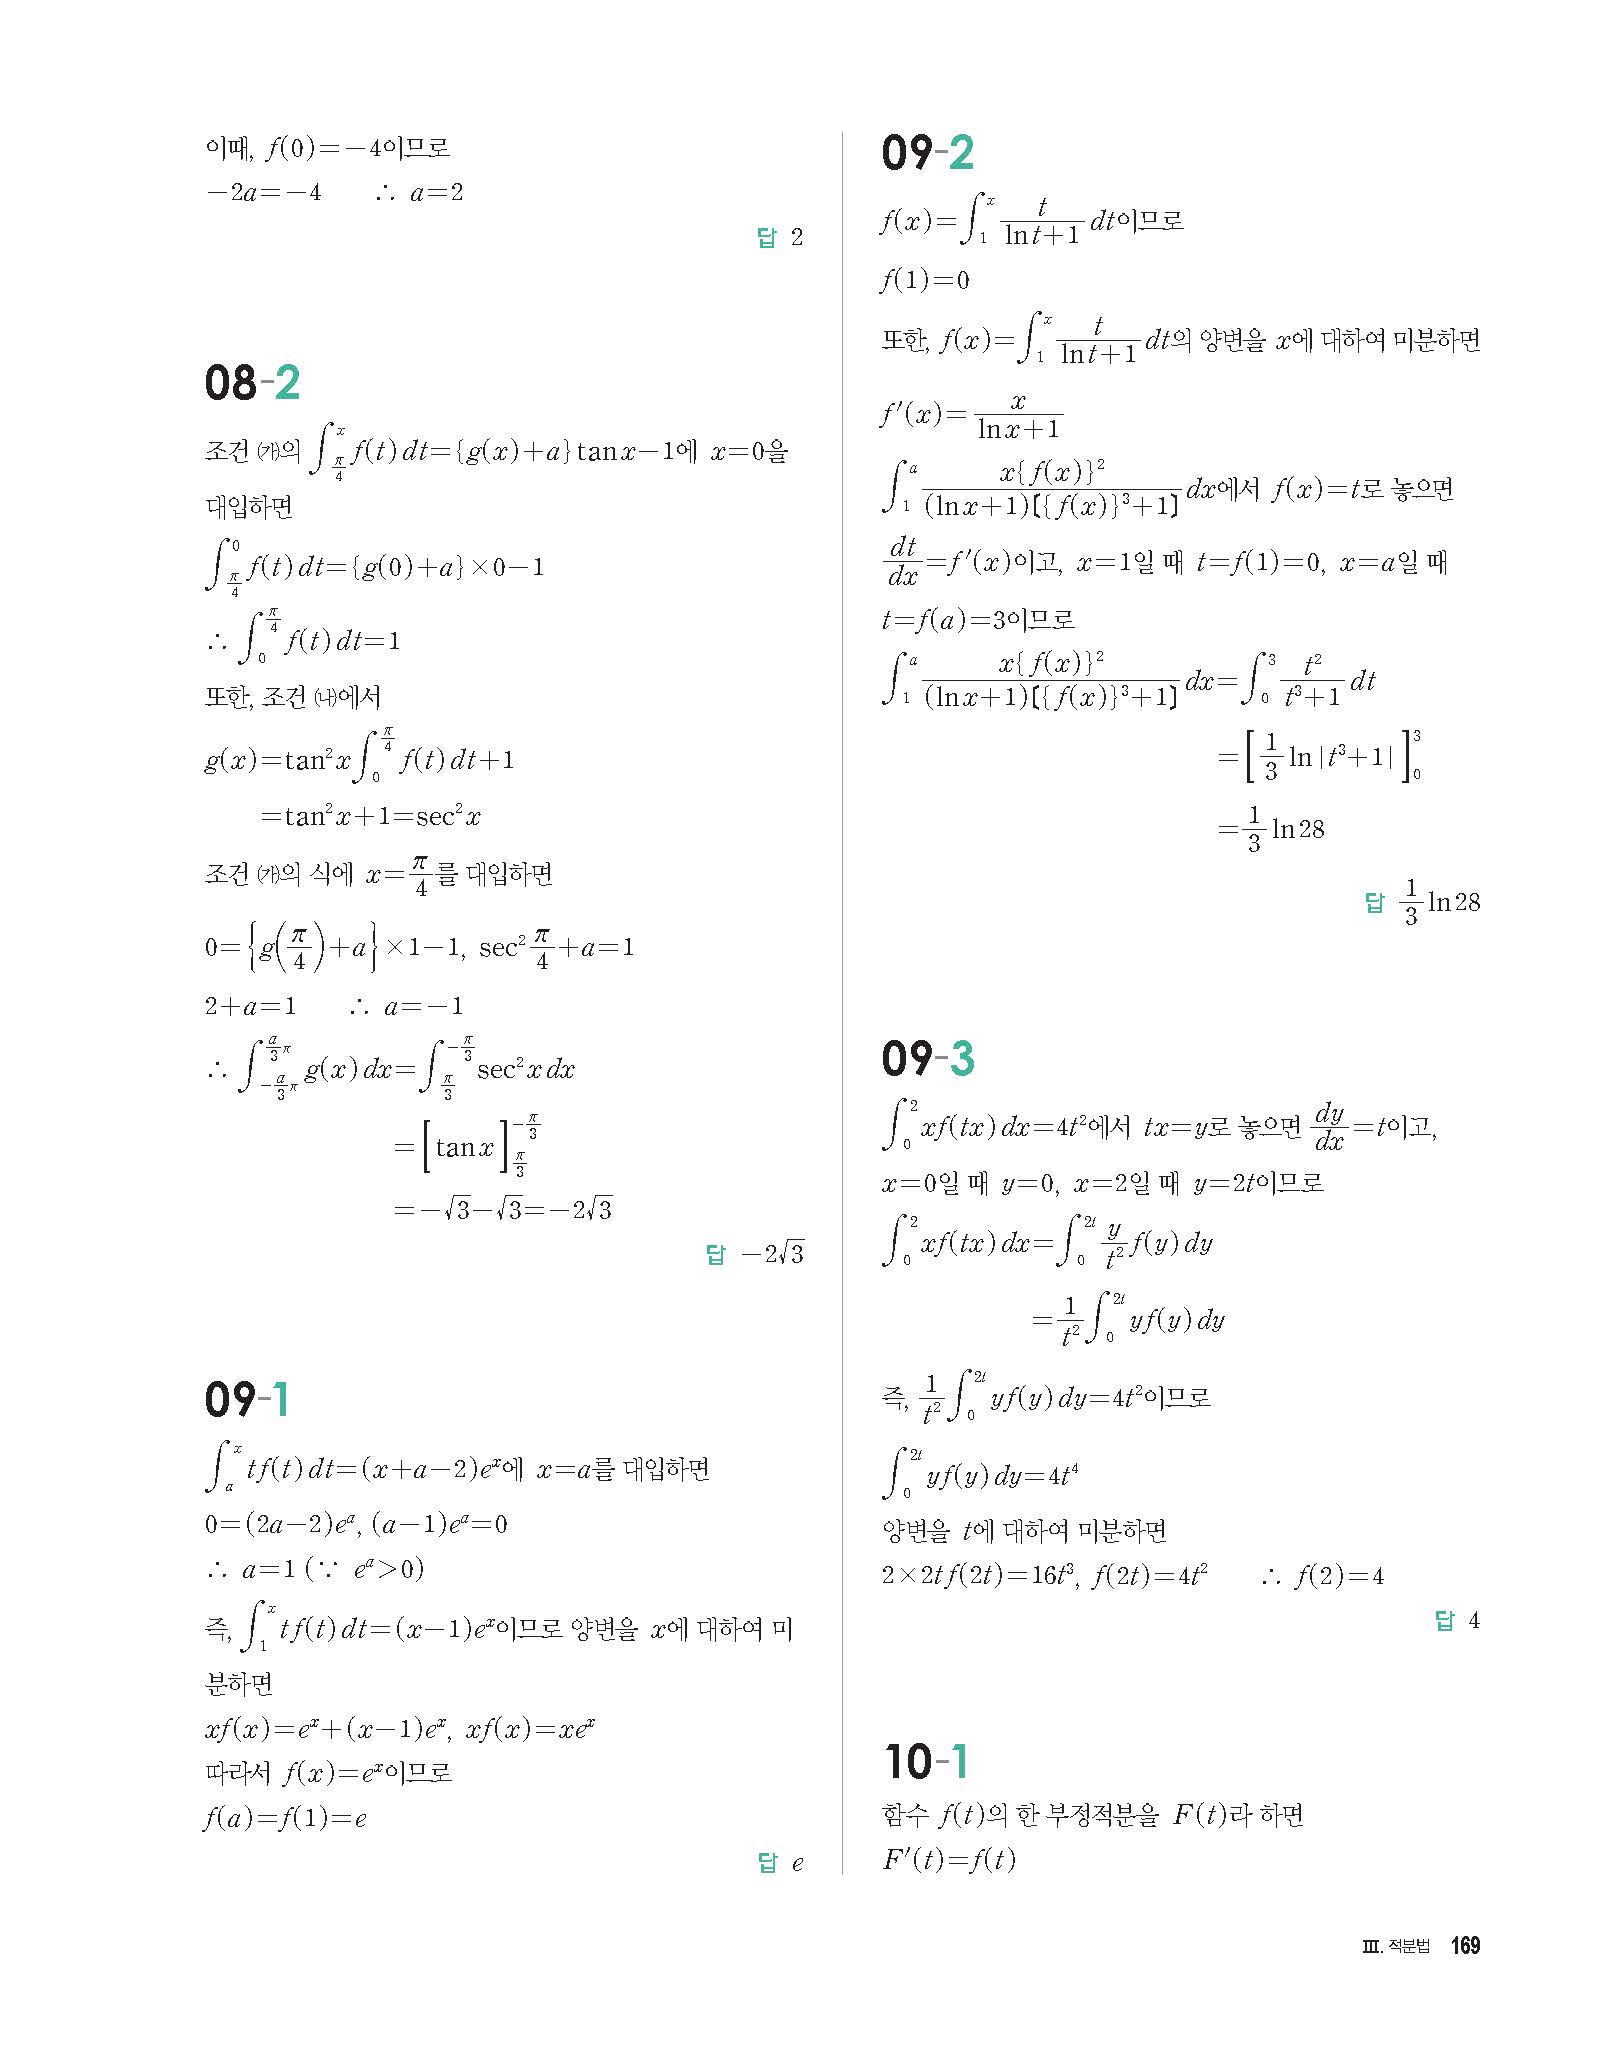 이때, f(0)=-4이므로
-2a=-4 ∴ a=2
답 2
08-2
조건 ㈎의 ∫_{π/4}^{x} f(t)dt={g(x)+a}tan x-1에 x=0을
대입하면
∫_{π/4}^{0} f(t)dt={g(0)+a}×0-1
∴ ∫_{0}^{π/4} f(t)dt=1
또한, 조건 ㈏에서
g(x)=tan²x∫_{0}^{π/4} f(t)dt+1
=tan²x+1=sec²x
조건 ㈎의 식에 x=π/4를 대입하면
0={g(π/4)+a}×1-1, sec²π/4+a=1
2+a=1 ∴ a=-1
∴ ∫_{-a/3 π}^{a/3 π} g(x)dx=∫_{π/3}^{-π/3} sec²x dx
=[tan x]_{π/3}^{-π/3}
=-√3-√3=-2√3
답 -2√3
09-1
∫_{a}^{x} tf(t)dt=(x+a-2)e^x에 x=a를 대입하면
0=(2a-2)e^a, (a-1)e^a=0
∴ a=1 (∵ e^a>0)
즉, ∫_{1}^{x} tf(t)dt=(x-1)e^x이므로 양변을 x에 대하여 미
분하면
xf(x)=e^x+(x-1)e^x, xf(x)=xe^x
따라서 f(x)=e^x이므로
f(a)=f(1)=e
답 e
09-2
f(x)=∫_{1}^{x} t/(ln t+1) dt이므로
f(1)=0
또한, f(x)=∫_{1}^{x} t/(ln t+1) dt의 양변을 x에 대하여 미분하면
f′(x)=x/(ln x+1)
∫_{1}^{a} x{f(x)}²/((ln x+1)[{f(x)}³+1]) dx에서 f(x)=t로 놓으면
dt/dx=f′(x)이고, x=1일 때 t=f(1)=0, x=a일 때
t=f(a)=3이므로
∫_{1}^{a} x{f(x)}²/((ln x+1)[{f(x)}³+1]) dx=∫_{0}^{3} t²/(t³+1) dt
=[1/3 ln|t³+1|]_{0}^{3}
=1/3 ln 28
답 1/3 ln 28
09-3
∫_{0}^{2} xf(tx)dx=4t²에서 tx=y로 놓으면 dy/dx=t이고,
x=0일 때 y=0, x=2일 때 y=2t이므로
∫_{0}^{2} xf(tx)dx=∫_{0}^{2t} y/t² f(y)dy
=1/t² ∫_{0}^{2t} yf(y)dy
즉, 1/t² ∫_{0}^{2t} yf(y)dy=4t²이므로
∫_{0}^{2t} yf(y)dy=4t⁴
양변을 t에 대하여 미분하면
2×2tf(2t)=16t³, f(2t)=4t² ∴ f(2)=4
답 4
10-1
함수 f(t)의 한 부정적분을 F(t)라 하면
F′(t)=f(t)
Ⅲ. 적분법 169